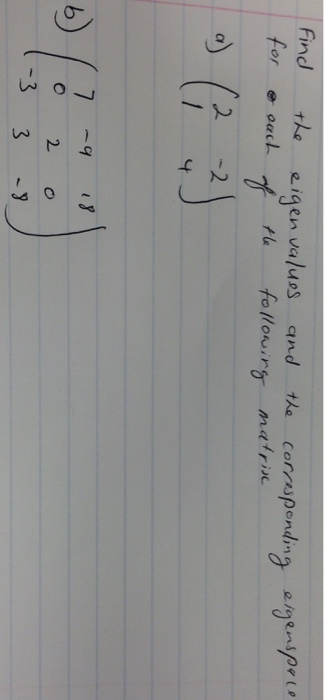 Find the eigenvalues and the corresponding eigenspace
for each of the following matrix
a) (2 -2
1 4)
b) (7 -9 18
0 2 0
-3 3 -8)